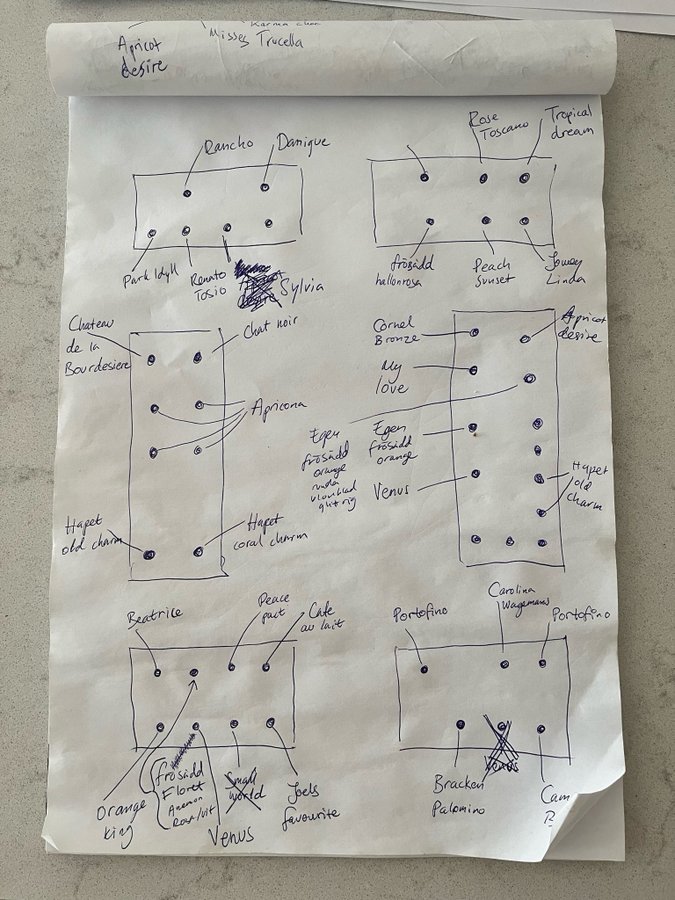 Karma
Misses Trucella
Apricot
desire
Rancho
Danique
Rose
Toscano
Tropical
dream
Park Idyll
Renato
Tosio
Sylvia
frösådd
hallonrosa
Peach
Sunset
Jowey
Linda
Chateau
de la
Bourdesiere
Chat noir
Apricona
Hapet
old charm
Hapet
coral charm
Cornel
Bronze
Apricot
desire
My
love
Egen
frösådd
orange
Egen
frösådd
orange
Venus
Hapet
old
charm
Beatrice
Peace
pact
Cafe
au lait
Orange
King
frösådd
Floret
Anemon
Venus
Small
World
Joels
favourite
Portofino
Carolina
Wagemans
Portofino
Bracken
Palomino
Venus
Cam